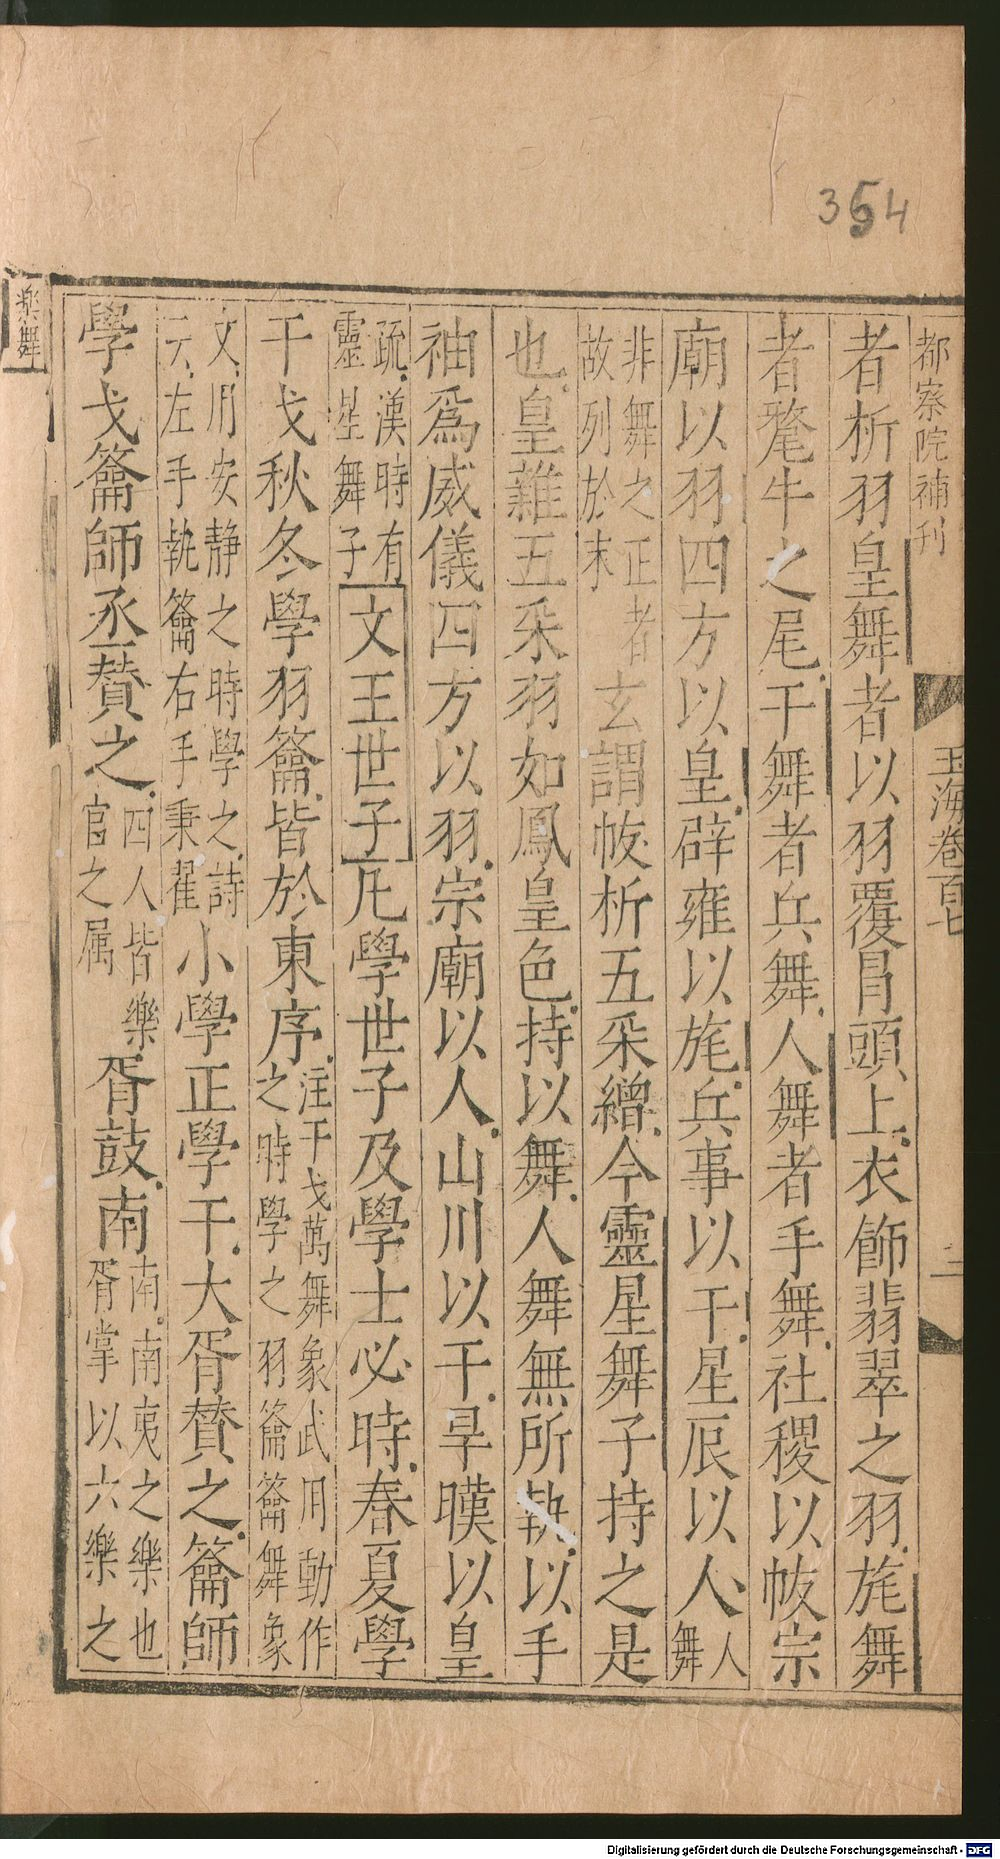 354
都察院補刊
玉海卷百七
二
者析羽皇舞者以羽覆冐頭上衣飾翡翠之羽旄舞
者氂牛之尾干舞者兵舞人舞者手舞社稷以帗宗
廟以羽四方以皇辟雍以旄兵事以干星辰以人人舞
非舞之正者故列於末玄謂帗析五采繒今靈星舞子持之是
也皇雜五采羽如鳳皇色持以舞人舞無所執以手
袖爲威儀四方以羽宗廟以人山川以干旱暵以皇
疏漢時有靈星舞子文王世子凡學世子及學士必時春夏學
干戈秋冬學羽籥皆於東序注干戈萬舞象武用動作之時學之羽籥籥舞象
文用安静之時學之詩云左手執籥右手秉翟小學正學干大胥賛之籥師
學戈籥師丞賛之四人皆樂官之属胥鼓南南南夷之樂也胥掌以六樂之
樂舞
Digitalisierung gefördert durch die Deutsche Forschungsgemeinschaft - DFG